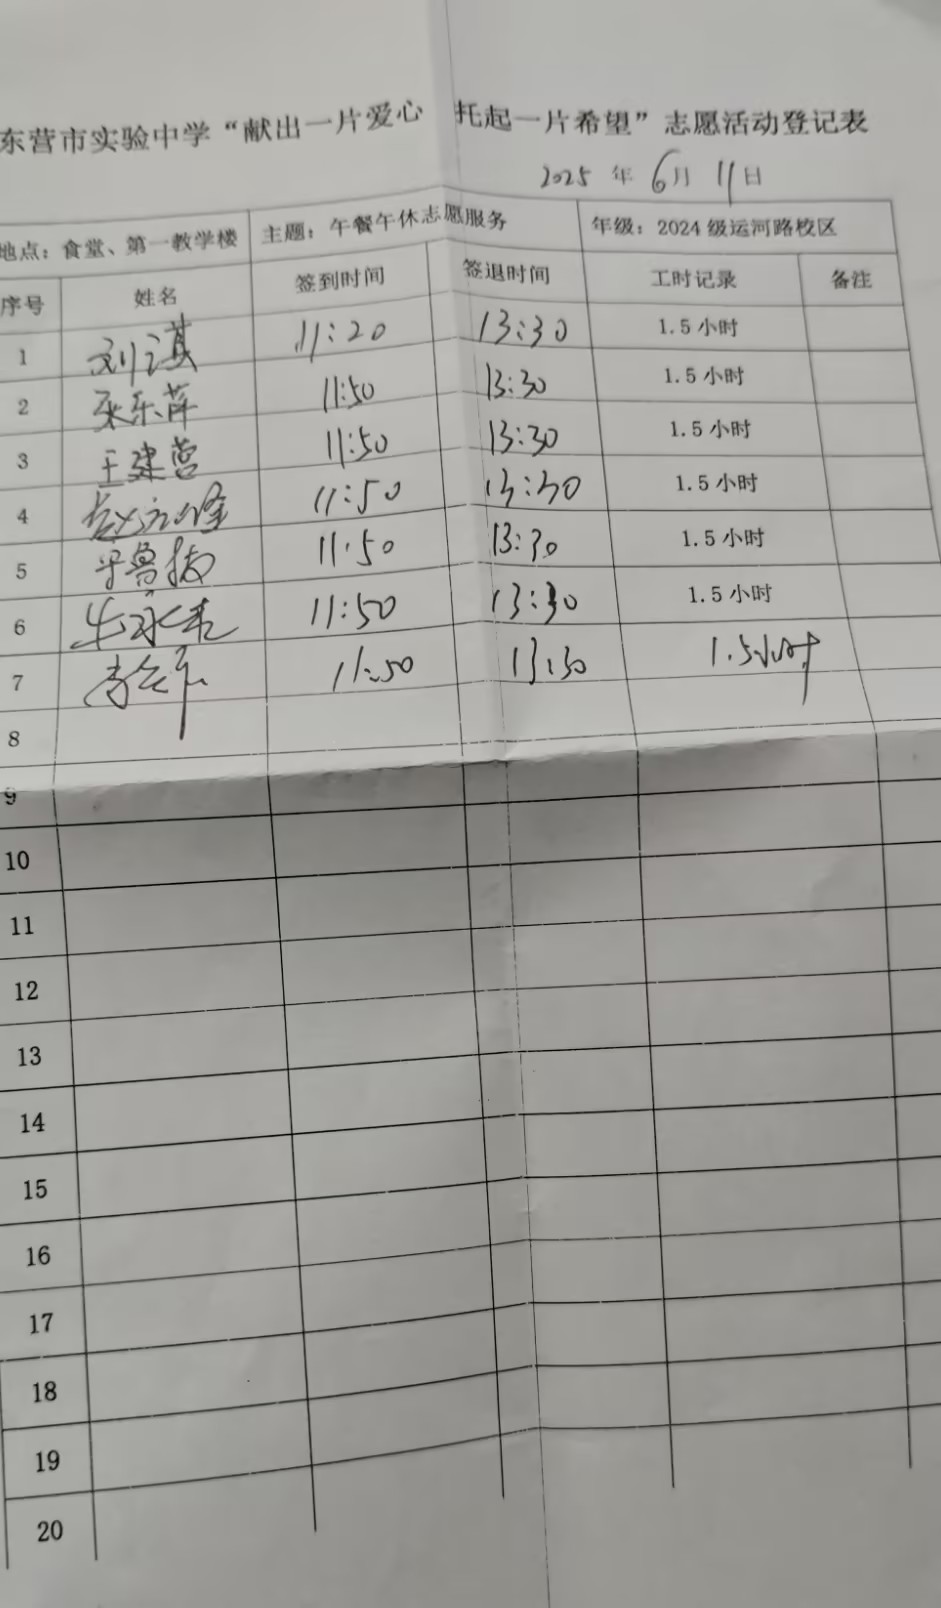 东营市实验中学“献出一片爱心 托起一片希望”志愿活动登记表
2025 年 6月 11日
地点：食堂、第一教学楼 主题：午餐午休志愿服务 年级：2024 级运河路校区
序号 姓名 签到时间 签退时间 工时记录 备注
1 刘淇 11:20 13:30 1.5 小时
2 张东萍 11:50 13:30 1.5 小时
3 王建营 11:50 13:30 1.5 小时
4 11:50 13:30 1.5 小时
5 11:50 13:30 1.5 小时
6 11:50 13:30 1.5 小时
7 11:50 13:30 1.5小时
8
9
10
11
12
13
14
15
16
17
18
19
20